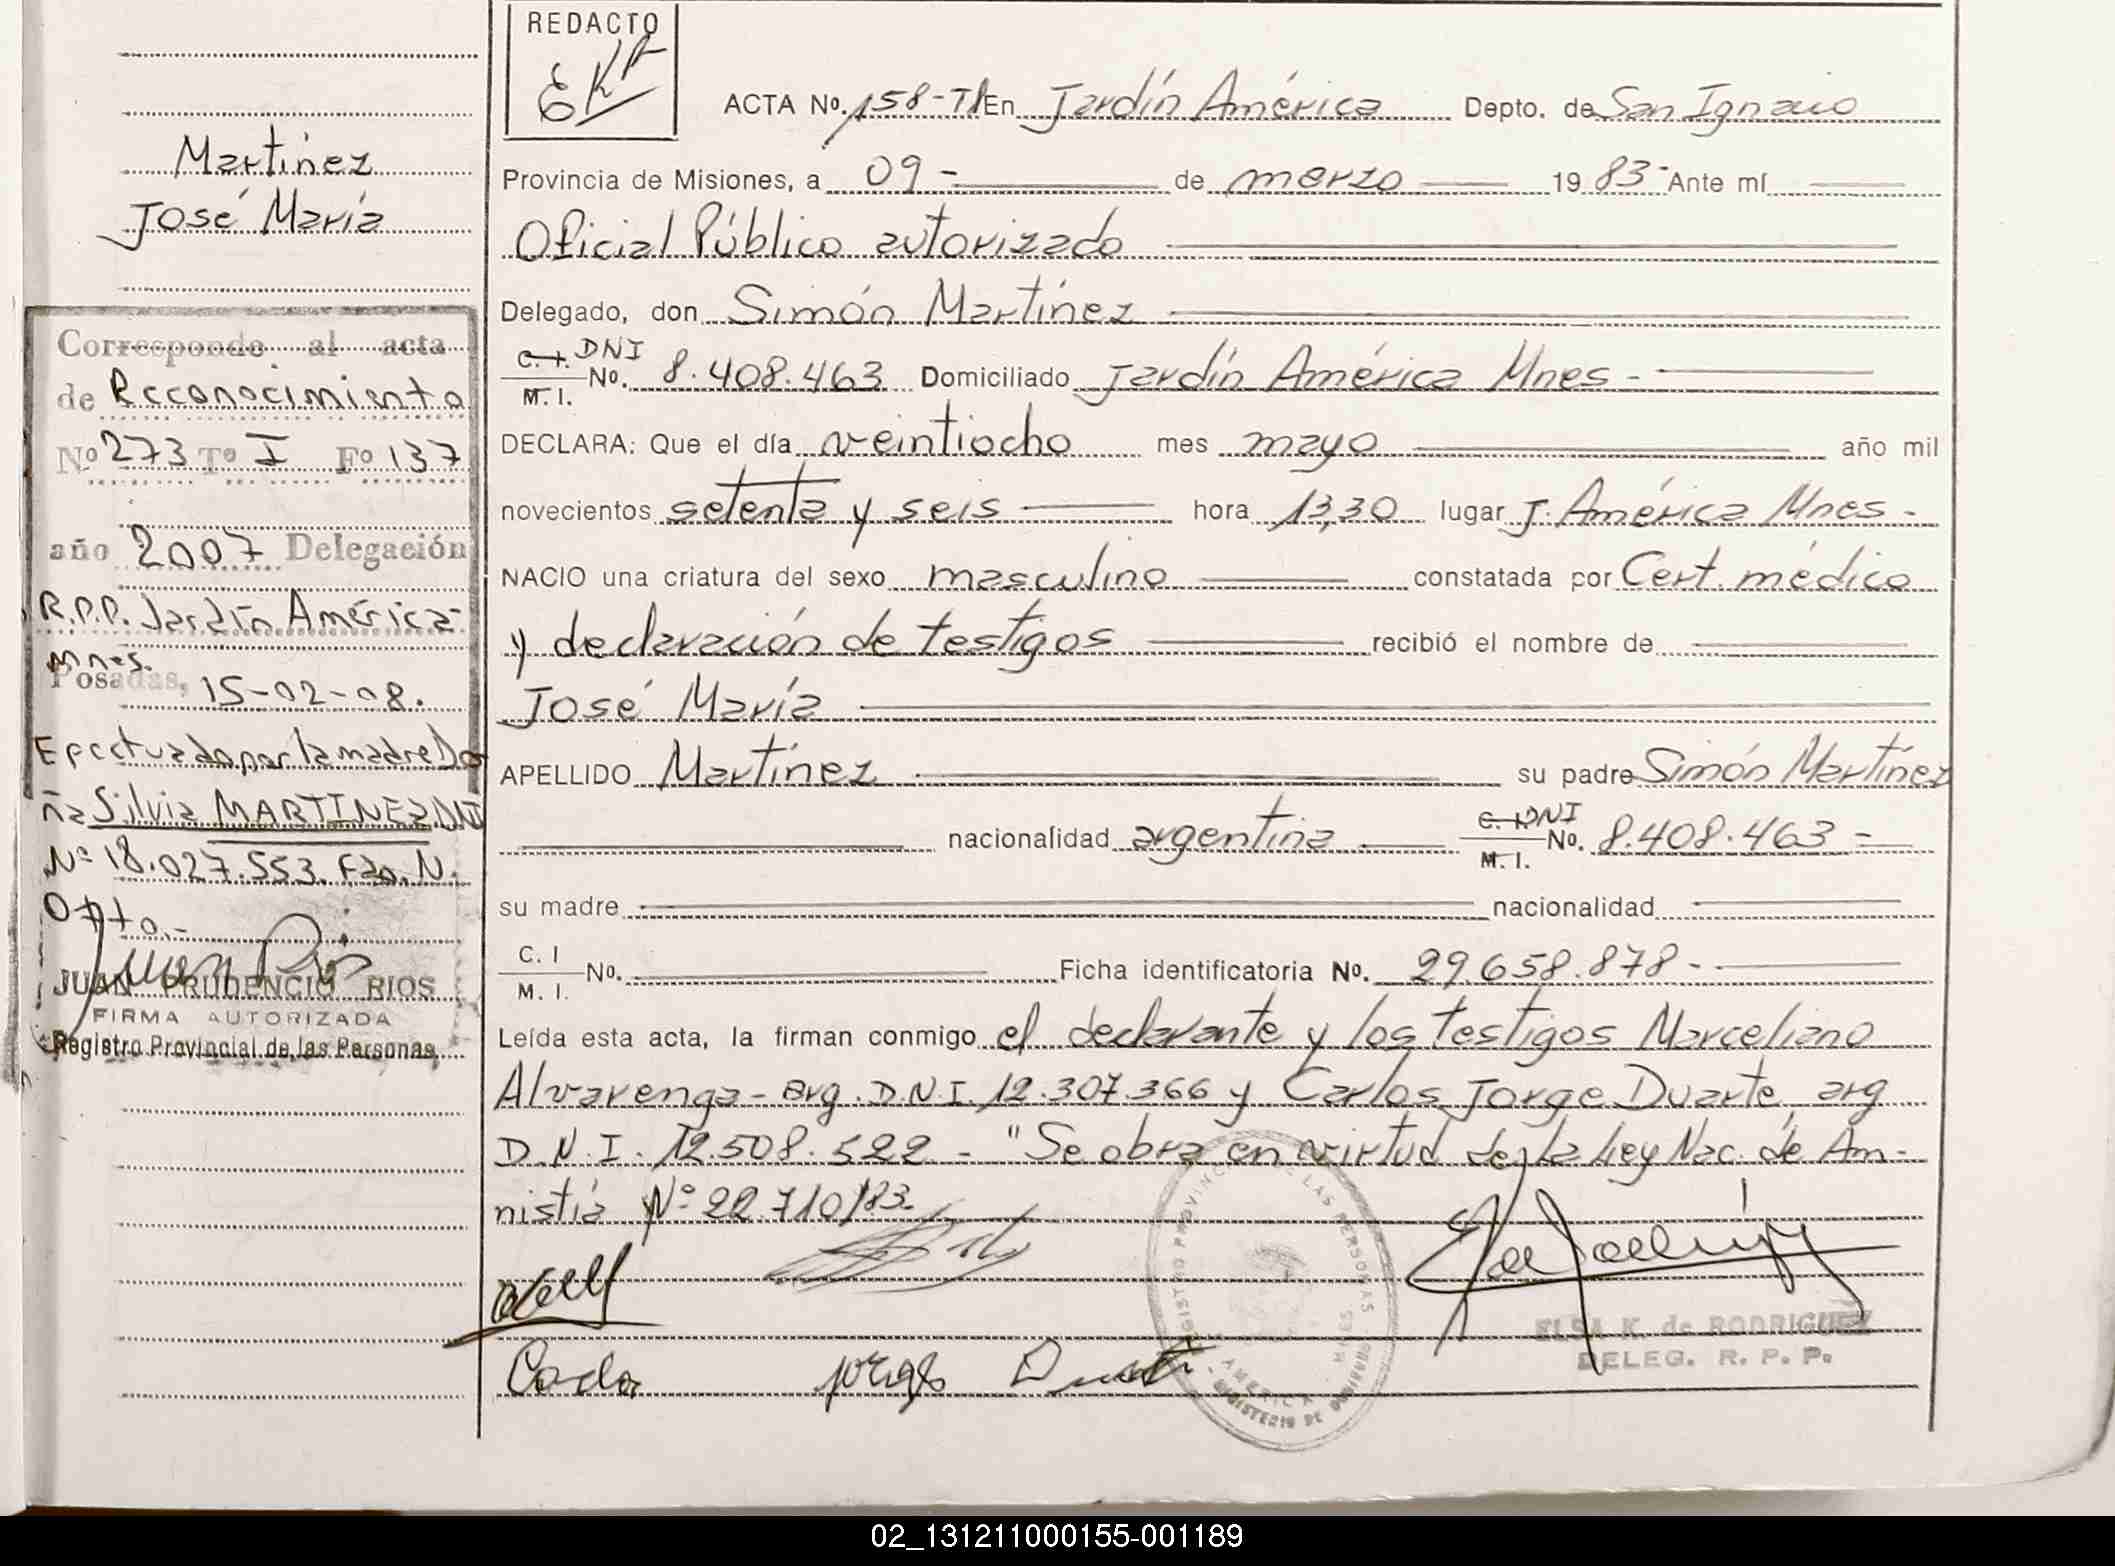 REDACTO
EKR
ACTA No. 158-TI En Jardín América Depto. de San Ignacio
Provincia de Misiones, a 09 - de marzo 19 83 - Ante mí
Oficial Público autorizado
Delegado, don Simón Martínez
C. I. DNI
M. I. No. 8.408.463 Domiciliado Jardín América Mnes -
DECLARA: Que el día veintiocho mes mayo año mil
novecientos setenta y seis hora 13,30 lugar J. América Mnes -
NACIO una criatura del sexo masculino constatada por Cert. médico
y declaración de testigos recibió el nombre de
José María
APELLIDO Martínez su padre Simón Martínez
nacionalidad argentina C. I. DNI M. I. No. 8.408.463 -
su madre nacionalidad
C. I
M. I. No. Ficha identificatoria No. 29.658.878 -
Leída esta acta, la firman conmigo el declarante y los testigos Marceliano
Alvarenga - arg. D.N.I. 12.307.366 y Carlos Jorge Duarte, arg
D.N.I. 12.508.522 - "Se obra en virtud de la Ley Nac. de Am-
nistía Nº 22.710/83.
Carlos Jorge Duarte
ELSA K. de RODRIGUEZ
DELEG. R. P. P.
REGISTRO PROVINCIAL DE LAS PERSONAS
AMERICA
MINISTERIO DE GOBIERNO
Martínez
José María
Corresponde al acta
de Reconocimiento
Nº 273 Tº I Fº 137
año 2007 Delegación
R.P.P. Jardín América -
Mnes.
Posadas, 15-02-08.
Efectuado por la madre Do
ña Silvia MARTINEZ DNI
Nº 18.027.553. Fdo. N.
JUAN PRUDENCIO RIOS
FIRMA AUTORIZADA
Registro Provincial de las Personas
02_131211000155-001189